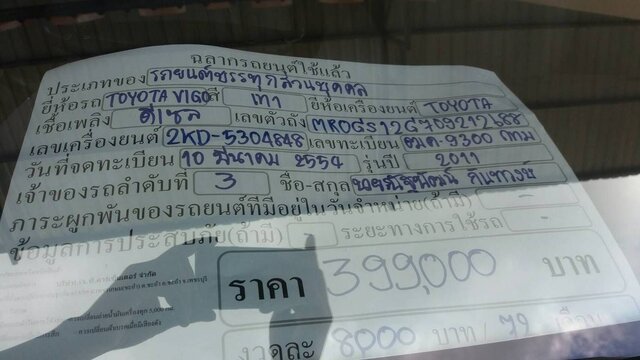 ฉลากรถยนต์ใช้แล้ว
ประเภทของ รถยนต์บรรทุกส่วนบุคคล
ยี่ห้อรถ TOYOTA VIGO สี เทา ยี่ห้อเครื่องยนต์ TOYOTA
เชื้อเพลิง ดีเซล เลขตัวถัง
เลขเครื่องยนต์ 2KD-5304848 เลขทะเบียน
วันที่จดทะเบียน 10 มีนาคม 2554 รุ่นปี 2011
เจ้าของรถลำดับที่ 3 ชื่อ-สกุล
ภาระผูกพันของรถยนต์ที่มีอยู่ในวันจำหน่าย(ถ้ามี) -
ข้อมูลการประสบภัย(ถ้ามี) ระยะทางการใช้รถ -
ราคา 399,000 บาท
งวดละ 8000 บาท / 72 เดือน